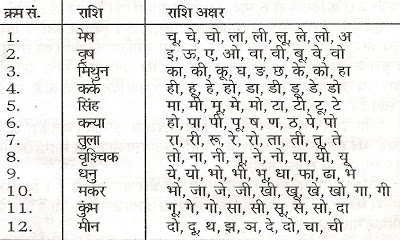 क्रम सं. राशि राशि अक्षर
1. मेष चू, चे, चो, ला, ली, लू, ले, लो, अ
2. वृष इ, ऊ, ए, ओ, वा, वी, बू, वे, वो
3. मिथुन का, की, कू, घ, ङ, छ, के, को, हा
4. कर्क ही, हू, हे, हो, डा, डी, डू, डे, डो
5. सिंह मा, मी, मू, मे, मो, टा, टी, टू, टे
6. कन्या हो, पा, पी, पू, ष, ण, ठ, पे, पो
7. तुला रा, री, रू, रे, रो, ता, ती, तू, ते
8. वृश्चिक तो, ना, नी, नू, ने, नो, या, यी, यू
9. धनु ये, यो, भो, भी, भू, धा, फा, ढा, भे
10. मकर भो, जा, जे, जी, खी, खू, खे, खो, गा, गी
11. कुंभ गू, गे, गो, सा, सी, सू, से, सो, दा
12. मीन दो, दू, थ, झ, ञ, दे, दो, चा, ची